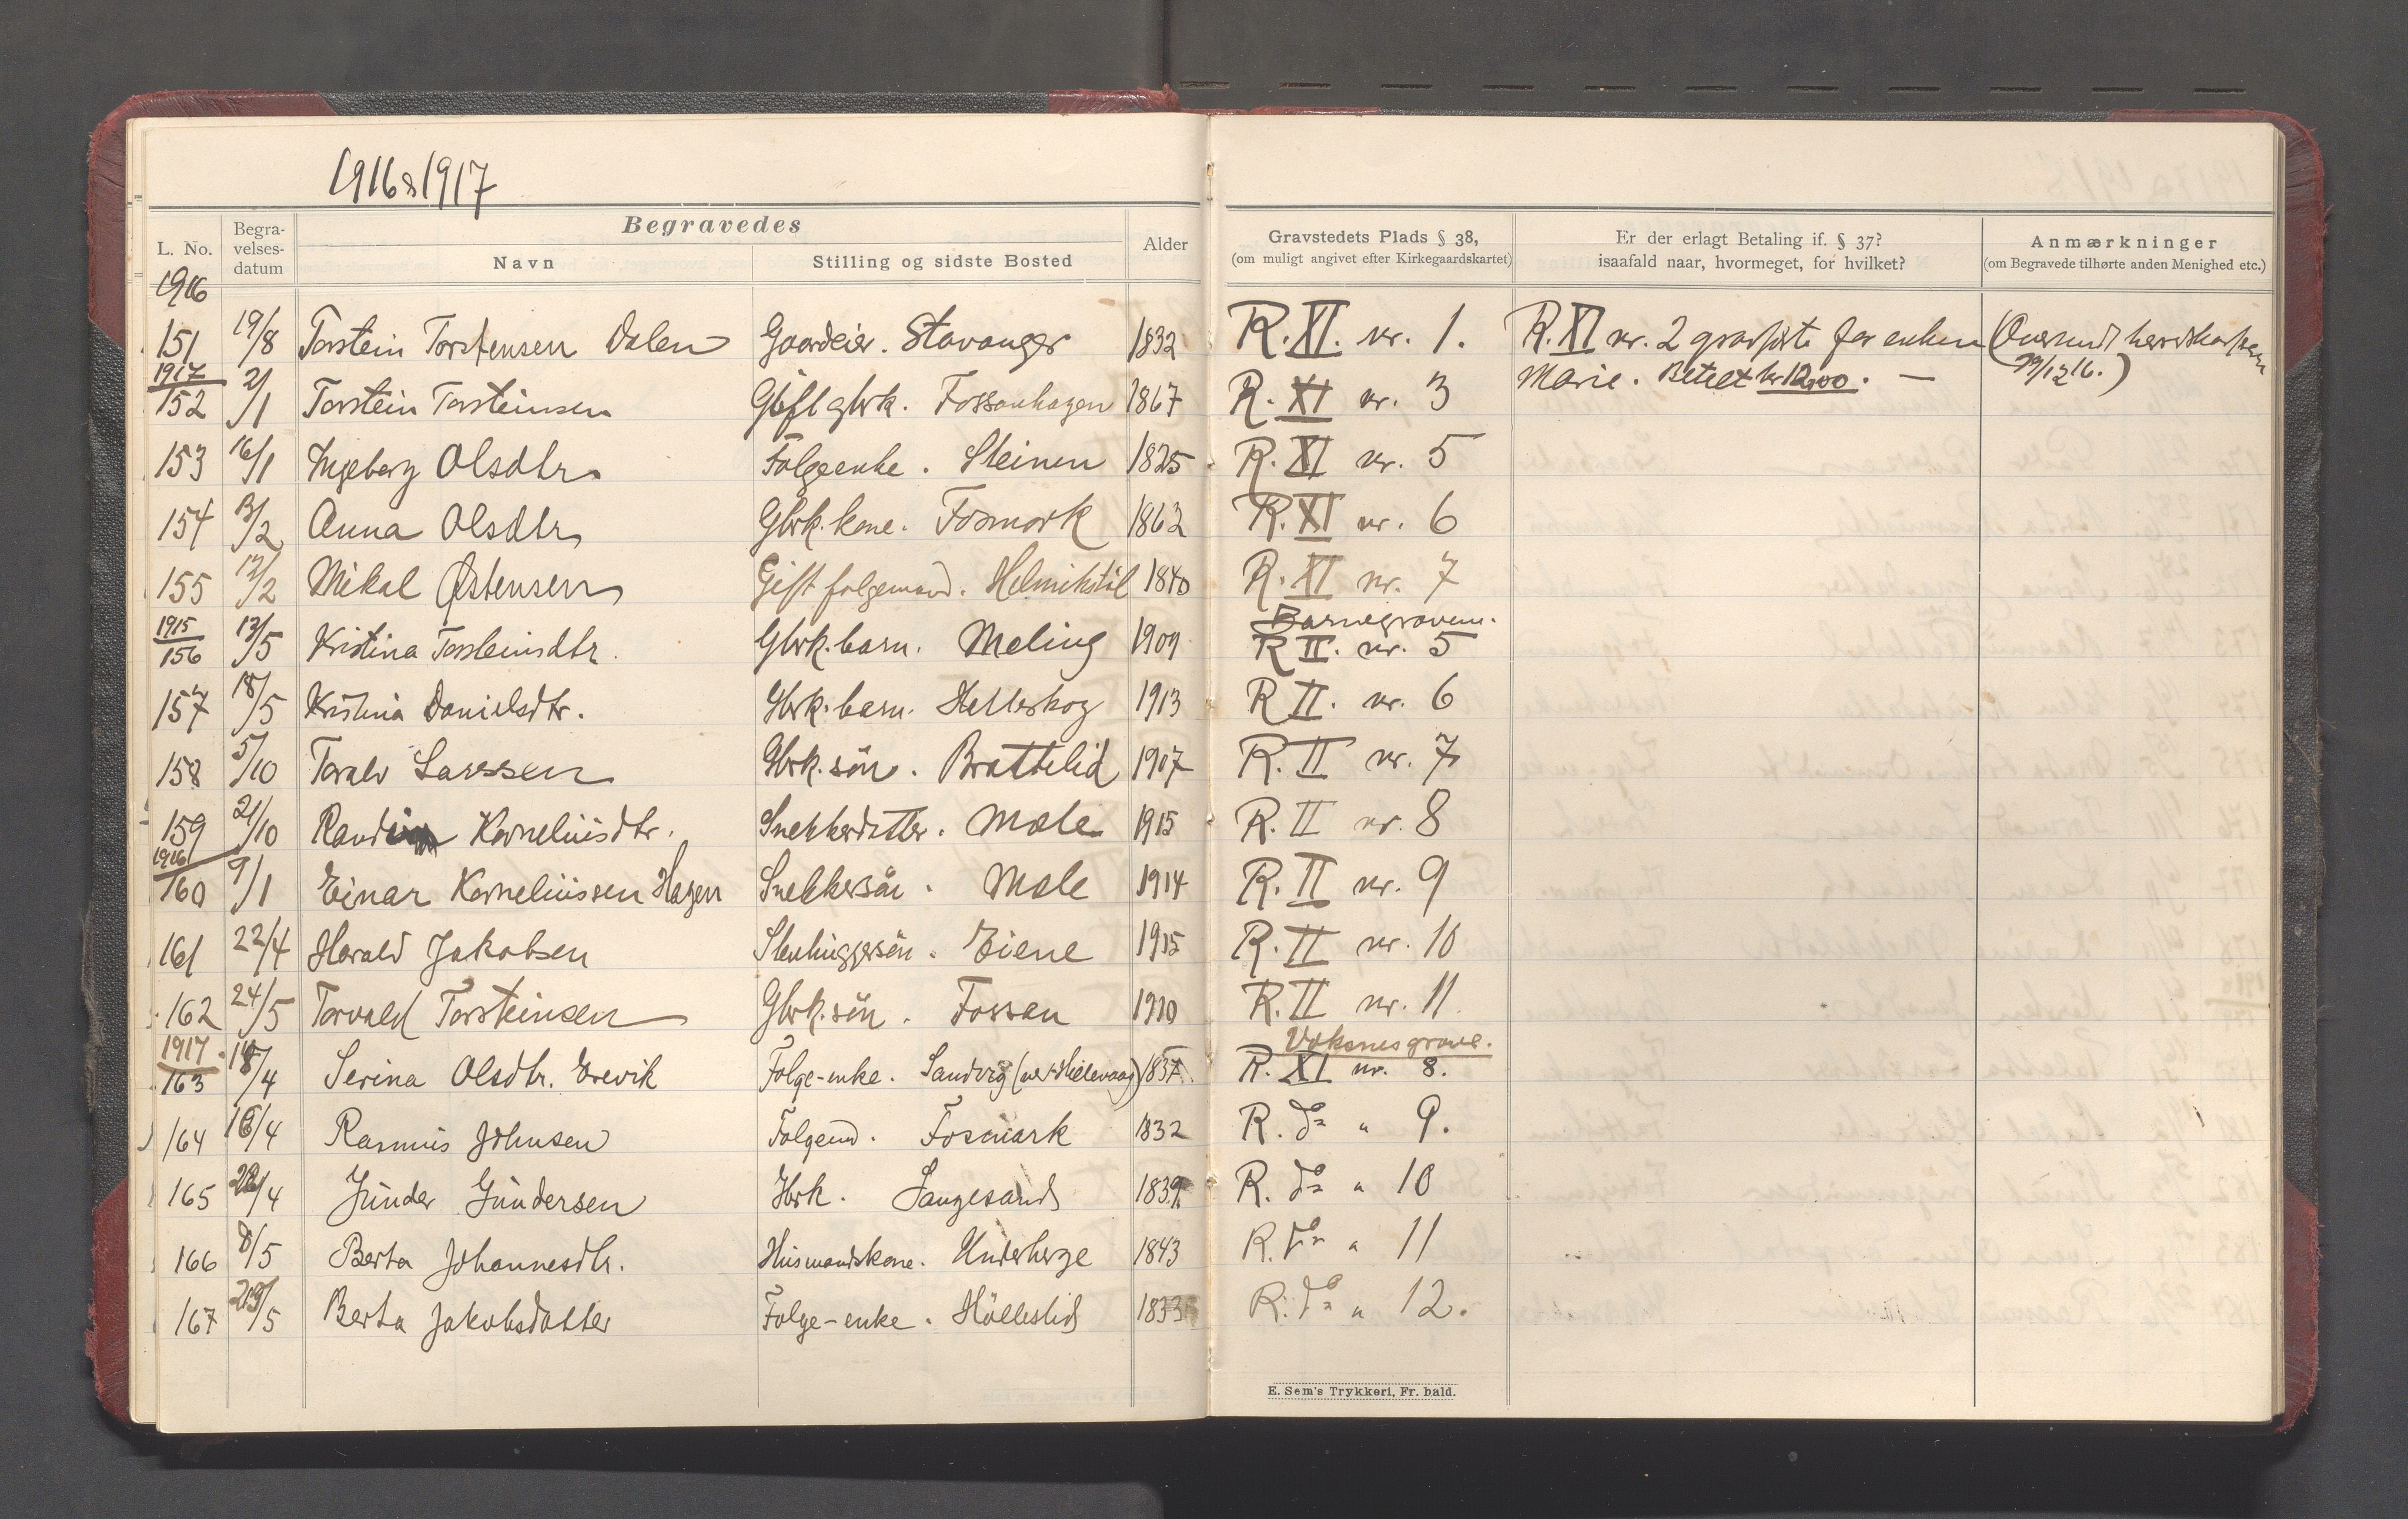 1916 & 1917
Begravedes
L. No. Begra-velses-datum Navn Stilling og sidste Bosted Alder Gravstedets Plads § 38, (om muligt angivet efter Kirkegaardskartet) Er der erlagt Betaling if. § 37? isaafald naar, hvormeget, for hvilket? Anmærkninger (om Begravede tilhørte anden Menighed etc.)
1916
151 19/8 Torstein Torstensen Dalen Gaardeier. Stavanger 1832 R. XI. nr. 1. R. XI nr. 2 for enken
Marie. Betalt kr 12,00. —
1917
152 2/1 Torstein Torsteinsen Gift gbrk. Fossanhagen 1867 R. XI nr. 3
153 16/1 Ingeborg Olsdtr. Folgeenke. Steinen 1825 R. XI nr. 5
154 13/2 Anna Olsdtr. Gbrk. kone. Fosmork 1862 R. XI nr. 6
155 12/2 Mikal Østensen Gift folgemand. Helmikstøl 1840 R. XI nr. 7
Barnegraven.
1915
156 13/5 Kristina Torsteinsdtr. Gbrk. barn. Meling 1909 R II. nr. 5
157 18/5 Kristina Danielsdtr. Gbrk. barn. Helleskog 1913 R II. nr. 6
158 5/10 Toralv Larssen Gbrk. sön. Brattelid 1907 R. II nr. 7
159 21/10 Korneliusdtr. Snekkerdatter. Mæle 1915 R. II nr. 8
1916
160 9/1 Einar Korneliussen Hagen Snekkersön. Mæle 1914 R. II nr. 9
161 22/4 Harald Jakobsen Stenhuggersön. Eiene 1915 R. II nr. 10
162 24/5 Torvald Torsteinsen Gbrk. sön. Fossan 1910 R. II nr. 11.
Voksnes grave.
1917
163 /4 Serina Olsdtr. Erevik Folge-enke. 1837. R. XI nr. 8.
164 16/4 Rasmus Johnsen Folgem. Fosmark 1832 R. do " 9.
165 /4 Gunder Gundersen Gbrk. Saugesand 1839 R. do " 10
166 8/5 Berta Johannesdtr. Husmandskone. Underberge 1843 R. do " 11
167 /5 Berta Jakobsdatter Folge-enke. Höllestid 1833 R. do " 12.
E. Sem's Trykkeri, Fr. hald.